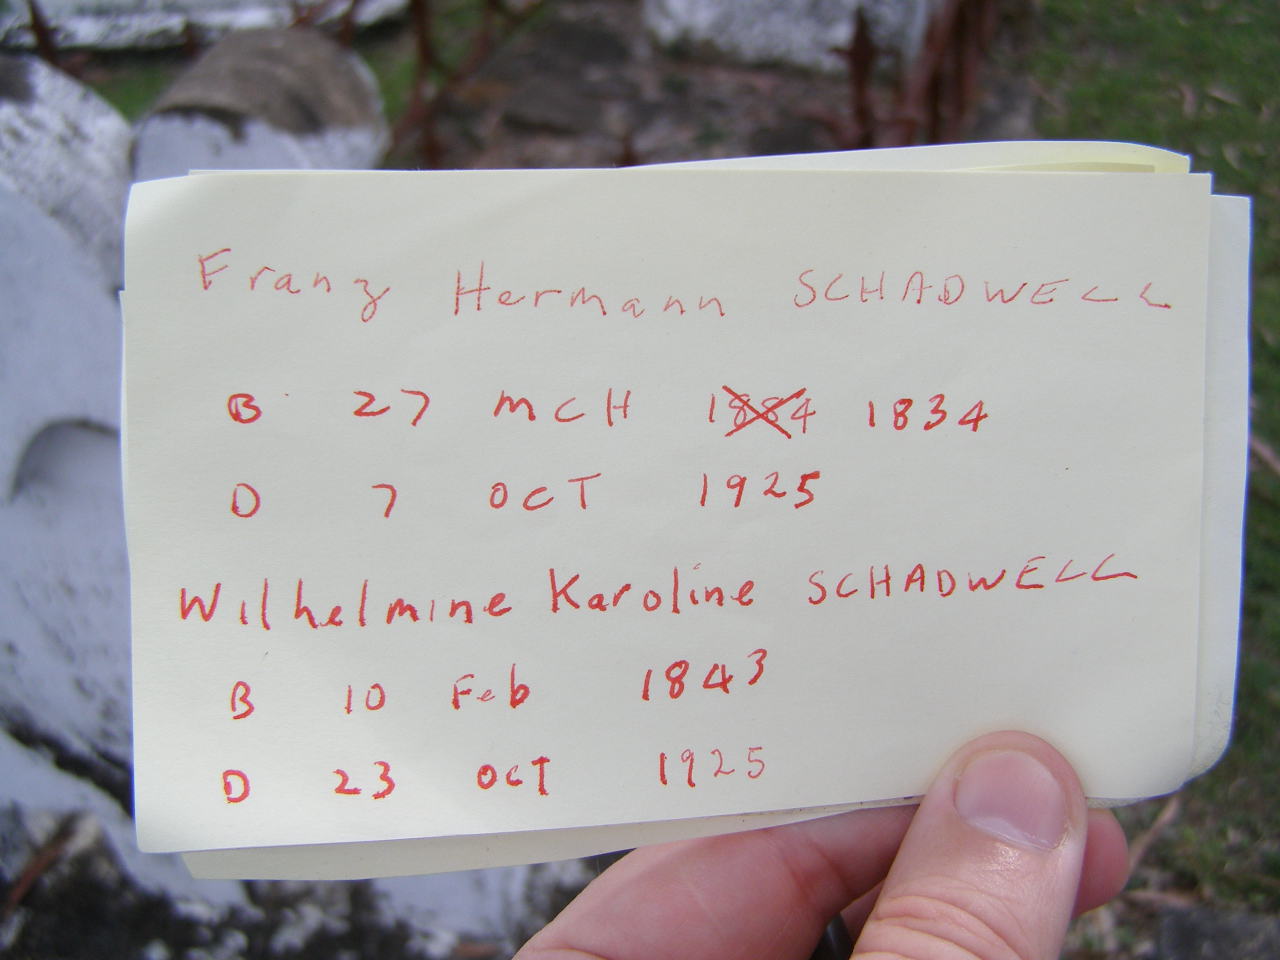 Franz Hermann SCHADWELL
B 27 MCH 1884 1834
D 7 OCT 1925
Wilhelmine Karoline SCHADWELL
B 10 Feb 1843
D 23 OCT 1925